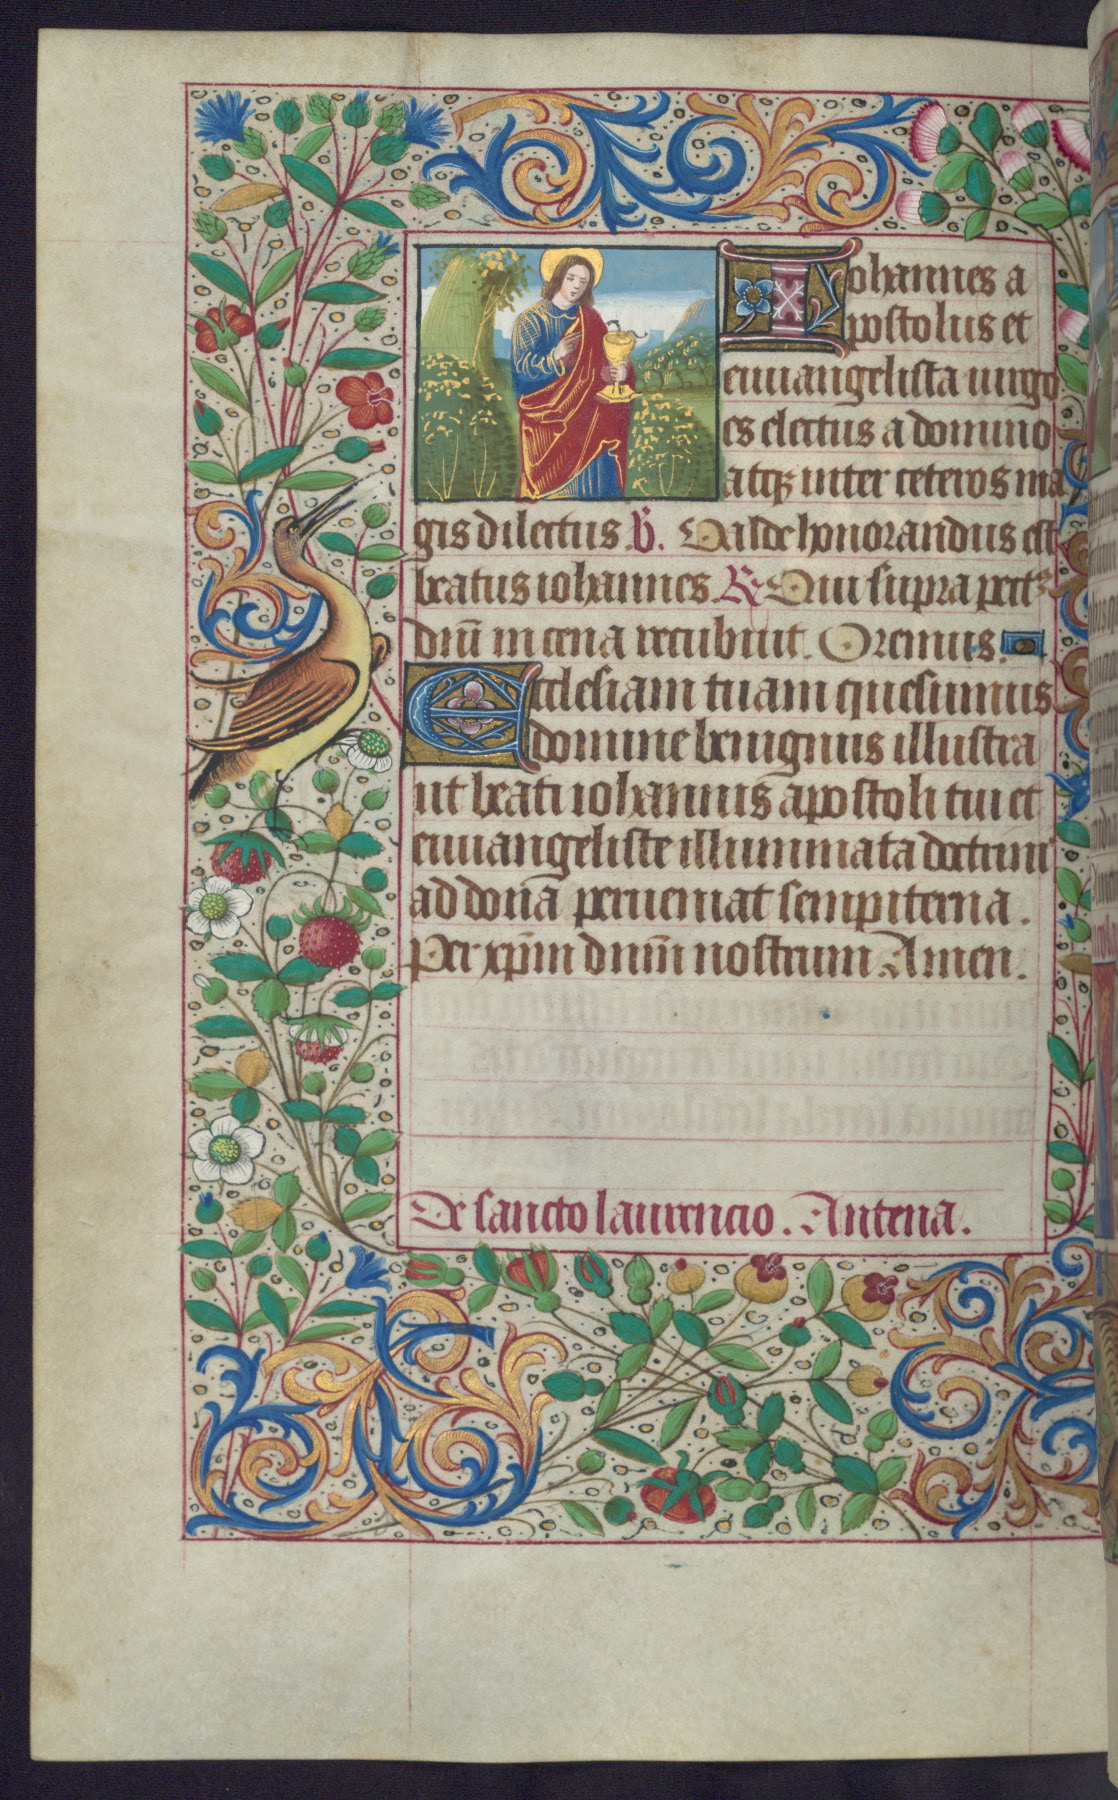 Iohannes a
postolus et
euuangelista uirgo
es electus a domino
atqz inter ceteros ma
gis dilectus. V. Valde honorandus est
beatus iohannes. R Qui supra pect9
dnī in cena recubuit. Oremus.
Ecclesiam tuam quesumus
domine benignus illustra
ut beati iohannis apostoli tui et
euuangeliste illuminata doctrinis
ad dona perueniat sempiterna.
Per xp̄m dnm̄ nostrum. Amen.
De sancto laurencio. Antena.